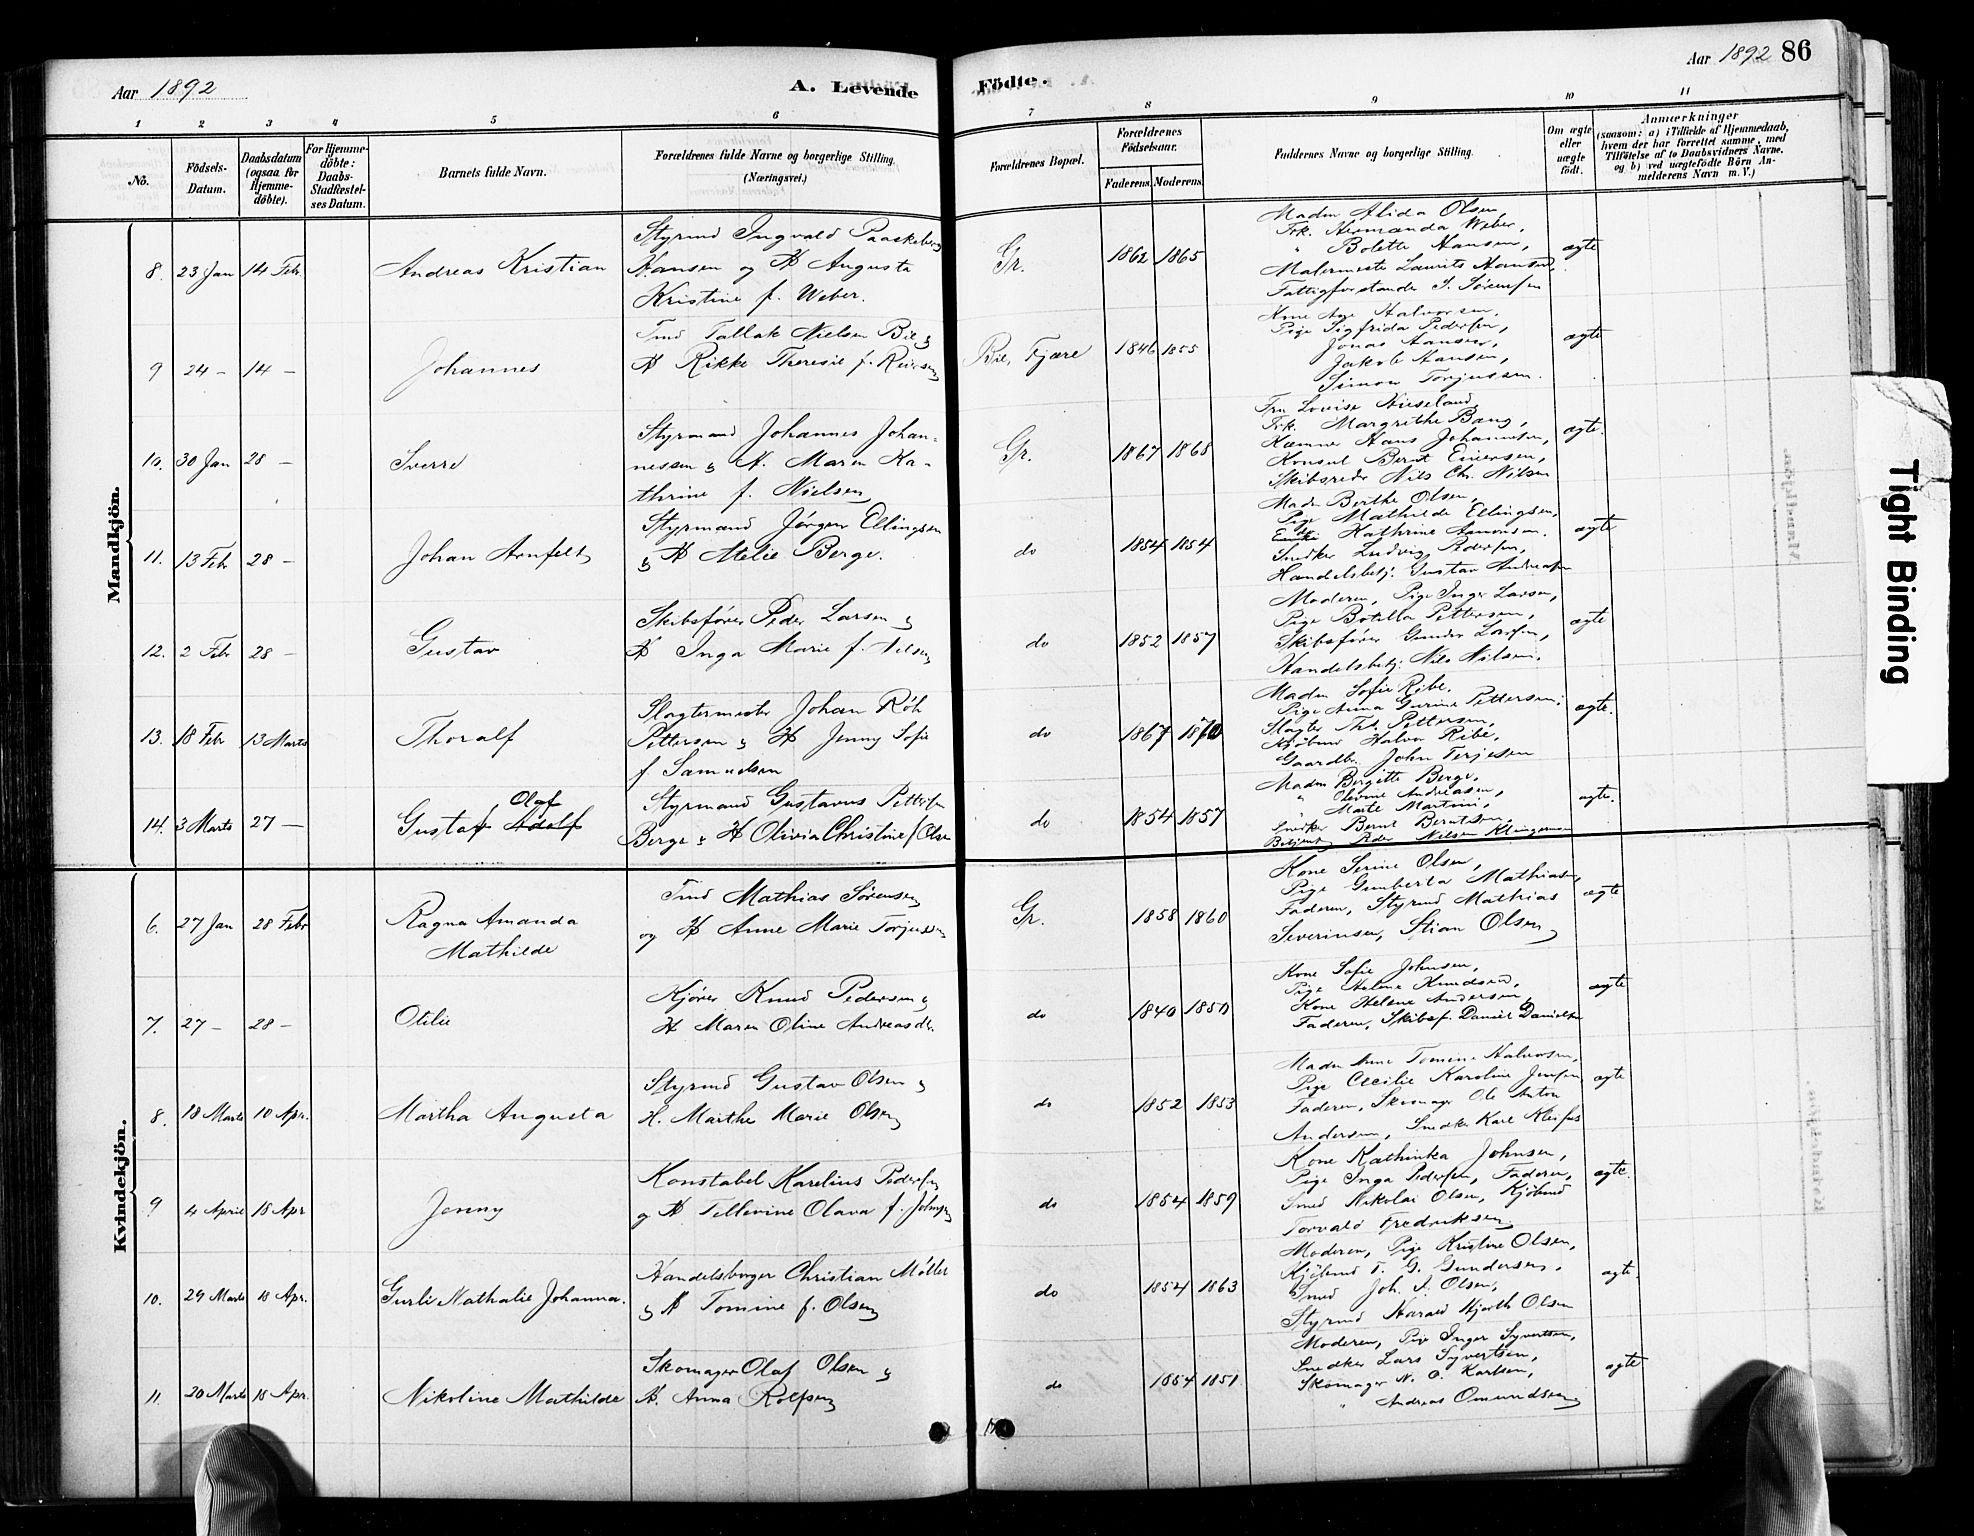 Aar 1892
A. Levende
Födte.
Aar 1892 86
1 2 3 4 5 6 7 8 9 10 11
No.
Födsels-Datum.
Daabsdatum (ogsaa for Hjemme-döbte).
For Hjemme-döbte: Daabs-Stadfæstel-ses Datum.
Barnets fulde Navn.
Forældrenes fulde Navne og borgerlige Stilling. (Næringsvei.)
Forældrenes Bopæl.
Forældrenes Födselsaar.
Faderens. Moderens.
Faddernes Navne og borgerlige Stilling.
Om ægte eller uægte födt.
Anmærkninger
(saasom: a) i Tilfælde af Hjemmedaab, hvem der har forrettet samme, med Tilföielse af to Daabsvidners Navne. og b) ved uægtefödte Börn An-melderens Navn m. V.)
Mandkjön.
8. 23 Jan 14 Febr. Andreas Kristian
Styrmd Ingvald Paaskeberg
Hansen og H Augusta
Kristine f. Weber.
Gr. 1862 1865
Madm Alida Olsen,
Frk. Hermanda Weber,
" Bolette Hansen,
Malermester Laurits Hansen,
Fattigforstander S. Sörensen
ægte
9 24 – 14 – Johannes
Tmd Tallak Nielsen Bie &
H Rikke Theresie f. Reiersen
Bie, Fjære 1846 1855
Kone Age Halvorsen,
Pige Sigfrida Pedersen,
Jonas Hansen,
Jakob Hansen,
Simon Torjussen.
ægte
10. 30 Jan 28 – Sverre
Styrmand Johannes Johan-
nessen & H. Maren Ka-
thrine f. Nielsen
Gr. 1867 1868
Fru Louise
Frk. Margrethe Bang,
Kæmner Hans Johannsen,
Konsul Bernt
Skibsreder Nils Chr. Nilsen
ægte.
11. 13 Febr 28 – Johan Arnfelt
Styrmand Jörgen Ellingsen
& H Atelie Berge.
do 1854 1854
Madm Berthe Olsen,
Pige Mathilde Ellingsen,
Kathrine
Snedker Ludvig Pedersen,
Handelsbetj. Gustav Andreasen
ægte
12. 2 Febr 28 – Gustav
Skibsförer Peder Larsen &
H Inga Marie f. Nilsen
do 1852 1857
Moderen, Pige Inger Larsen,
Pige Botilla Pettersen,
Skibsförer Gunder Larsen,
Handelsbetj. Nils Nilsen.
ægte
13. 18 Febr 13 Marts Thoralf
Slagtermester Johan
Pettersen & H Jenny Sofie
f Samuelsen
do 1867 1870
Madm Sofie Ribe.
Pige Anna Gurine Pettersen,
Slagter Ths. Pettersen,
Kjöbmd Halvor Ribe.
Gaardbr. John Terjesen
ægte.
14. 3 Marts 27 – Gustaf Adolf Olaf
Styrmand Gustavus Pettersen
Berge & H Olivia Christine f Olsen
do 1854 1857
Madm Bergitte Berge,
" Olevine Andreasen,
" Marte Martini,
Snedker Bernt Berntsen,
Betjent Peder Nilsen
ægte.
Kvindekjön.
6. 27 Jan 28 Febr Ragna Amanda
Mathilde
Tmd Mathias Sörensen
og H Anne Marie Torjussen
Gr. 1858 1860
Kone Serine Olsen,
Pige Gunberta Mathiasen,
Faderen, Styrmd Mathias
Severinsen, Stian Olsen
ægte
7. 27 – 28 – Otilie
Kjörer Knud Pedersen &
H Maren Oline Andreasdr.
do 1840 1850
Kone Sofie Johnsen,
Pige Helene Knudsen,
Kone Helene Andersen
Faderen, Skibsf. Daniel Danielsen
ægte
8. 18 Marts 10 Apr. Martha Augusta
Styrmd Gustav Olsen &
H. Marthe Marie Olsen
do 1852 1853
Madm Anne Tomine Halvorsen,
Pige Cecilie Karoline Jensen
Faderen, Skomager Ole Anton
Andersen, Snedker Karl
ægte
9 4 April 18 Apr Jenny
Konstabel Karelius Pedersen
og H Tellevine Olava f. Johnsen
do 1854 1859
Kone Kathinka Johnsen,
Pige Inga Pedersen, Faderen,
Smed Nikolai Olsen, Kjöbmd
Torvald Fredriksen
ægte.
10. 29 Marts 18 Apr. Gurli Nathalie Johanna.
Handelsborger Christian Möller
& H Tomine f. Olsen
do 1854 1863
Moderen, Pige Kristine Olsen,
Kjöbmd T. G. Gundersen,
Smed Joh. S. Olsen,
Styrmd Harald Hjorth Olsen
ægte.
11. 20 Marts 18 Apr. Nikoline Mathilde
Skomager Olaf Olsen &
H. Anna Rolfsen
do 1854 1851
Moderen, Pige Inger Syvertsen,
Snedker Lars Syvertsen,
Skomager N. O. Karlsen,
" Andreas Omundsen
ægte
Tight Binding